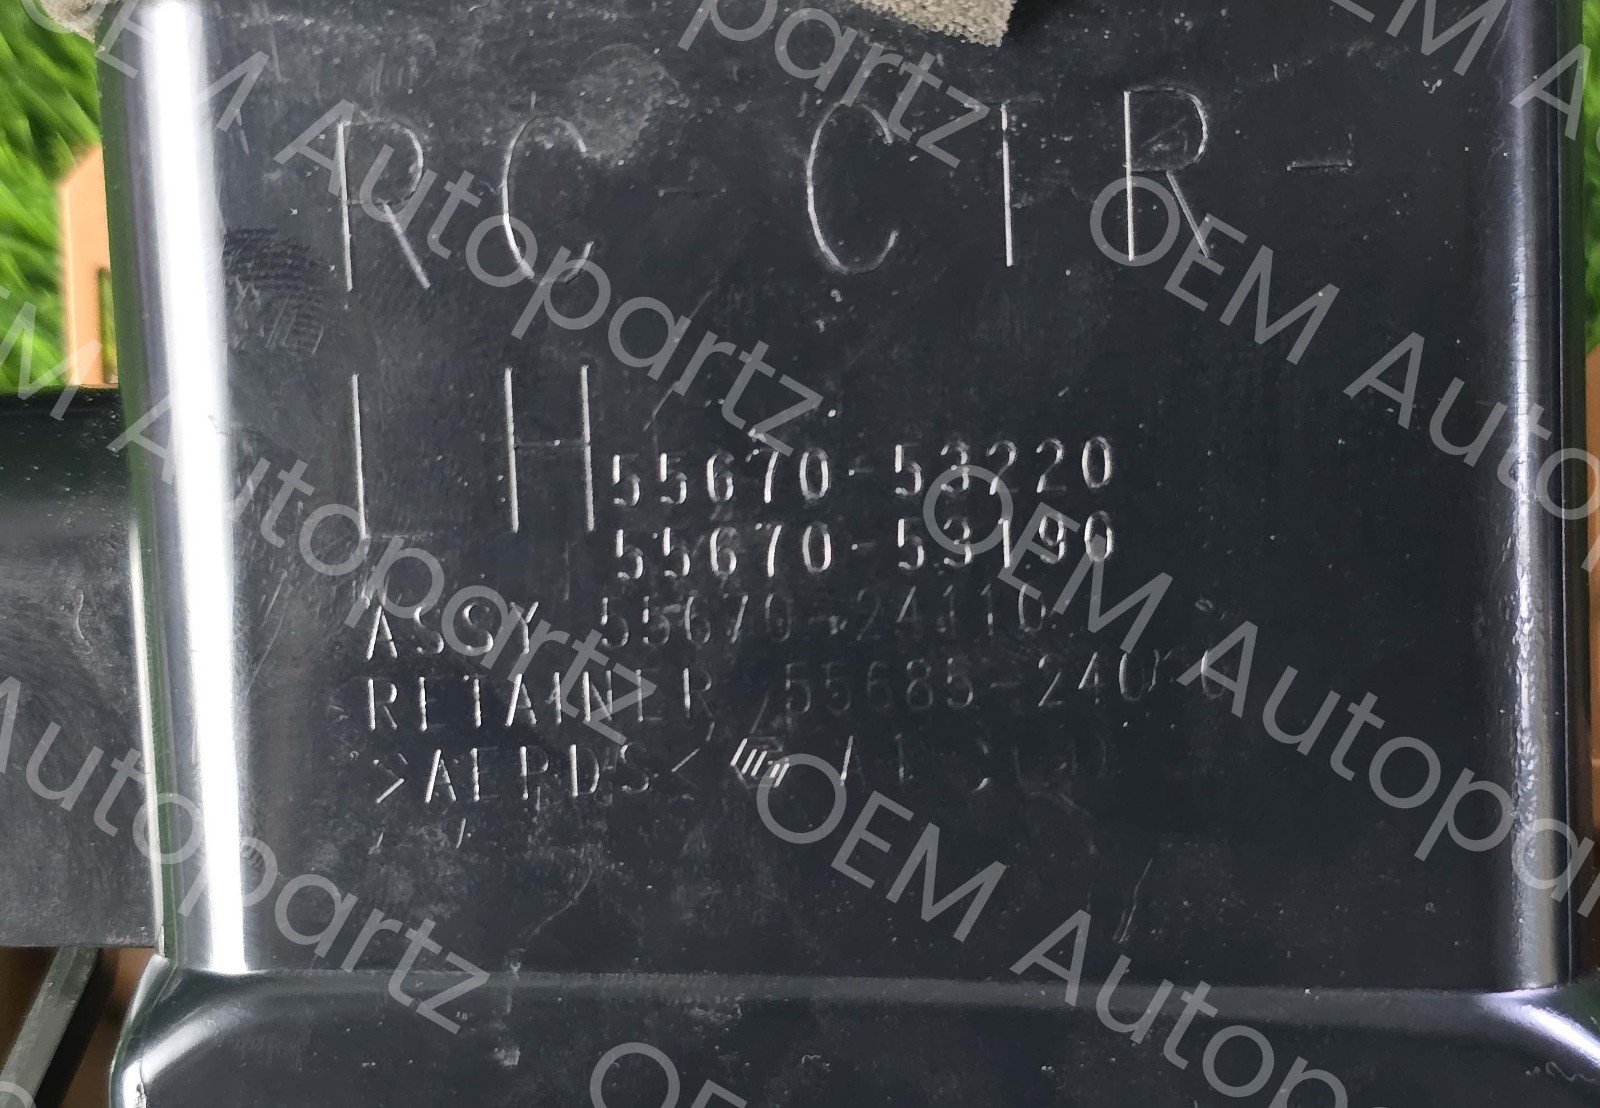 RC-CTR-
LH
55670-53220
55670-53190
ASSY 55670-24110
RETAINER 55685-240
>AEPDS<
OEM Autopartz
OEM Autopartz
OEM Autopartz
OEM Autopartz
OEM Autopartz